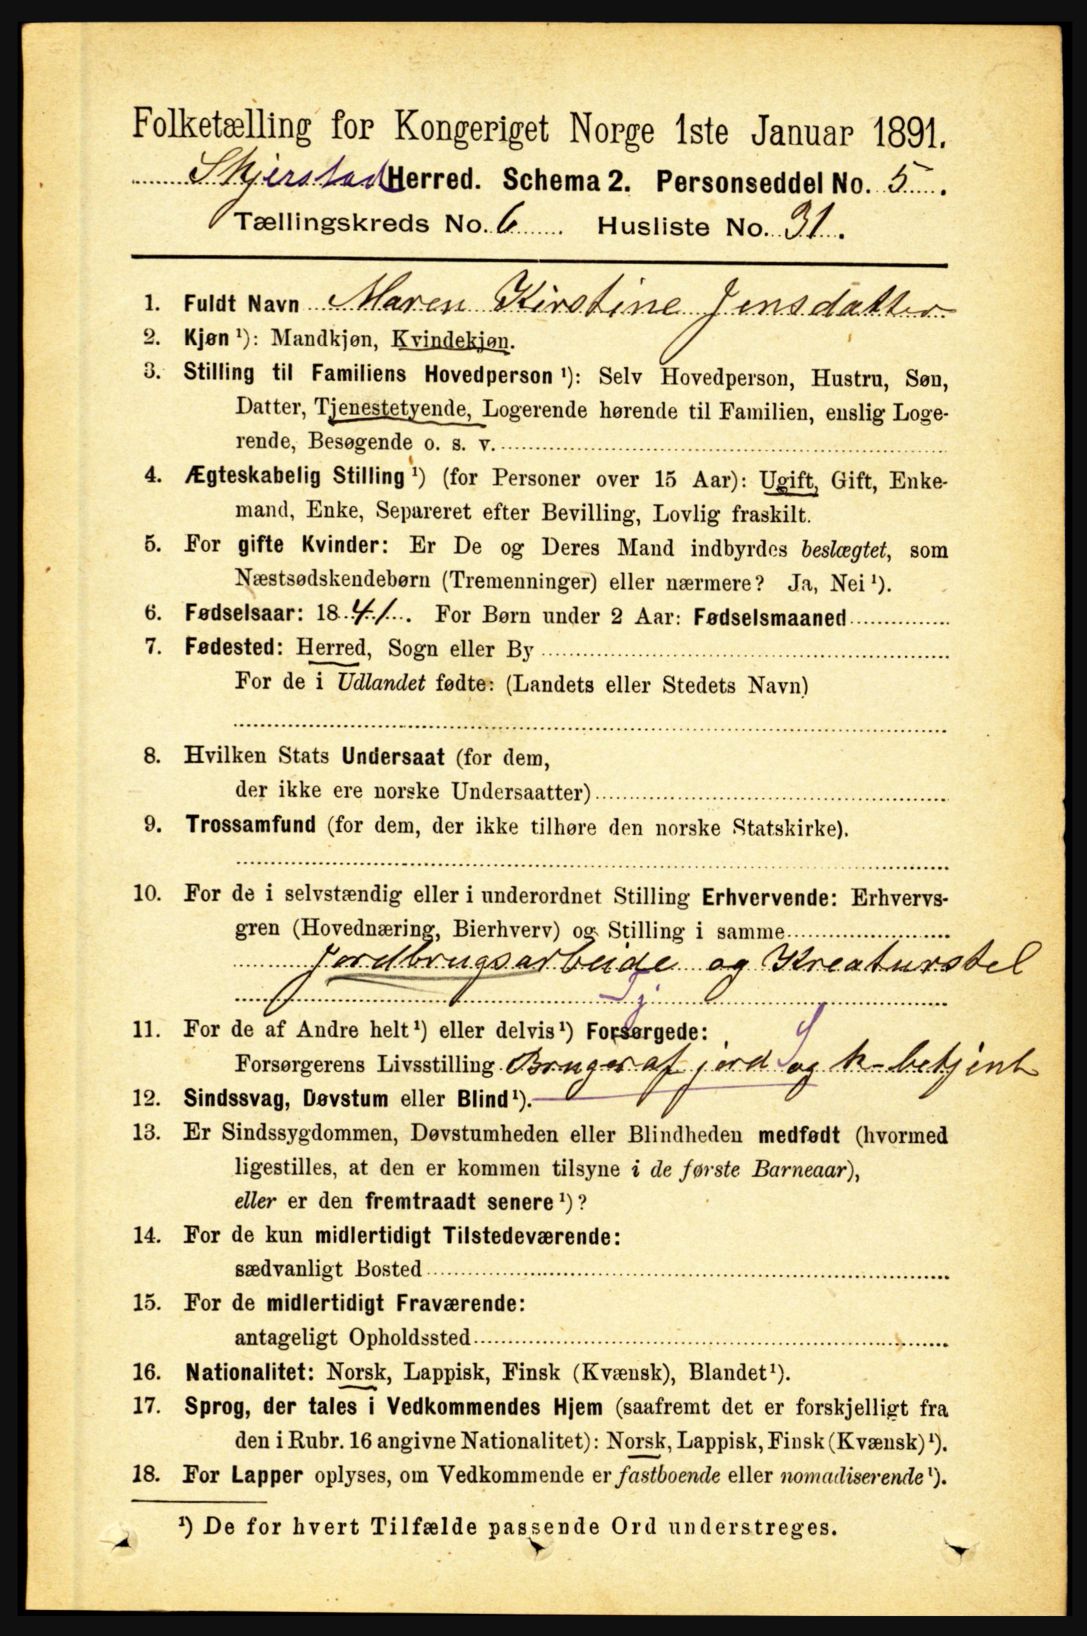 Folketælling for Kongeriget Norge 1ste Januar 1891.
Skjerstad Herred. Schema 2. Personseddel No. 5.
Tællingskreds No. 6 Husliste No. 31.
1. Fuldt Navn Maren Kirstine Jensdatter
2. Kjøn ¹): Mandkjøn, Kvindekjøn.
3. Stilling til Familiens Hovedperson ¹): Selv Hovedperson, Hustru, Søn,
Datter, Tjenestetyende, Logerende hørende til Familien, enslig Loge-
rende, Besøgende o. s. v.
4. Ægteskabelig Stilling ¹) (for Personer over 15 Aar): Ugift, Gift, Enke-
mand, Enke, Separeret efter Bevilling, Lovlig fraskilt.
5. For gifte Kvinder: Er De og Deres Mand indbyrdes beslægtet, som
Næstsødskendebørn (Tremenninger) eller nærmere? Ja, Nei ¹).
6. Fødselsaar: 1841. For Børn under 2 Aar: Fødselsmaaned
7. Fødested: Herred, Sogn eller By
For de i Udlandet fødte: (Landets eller Stedets Navn)
8. Hvilken Stats Undersaat (for dem,
der ikke ere norske Undersaatter)
9. Trossamfund (for dem, der ikke tilhøre den norske Statskirke).
10. For de i selvstændig eller i underordnet Stilling Erhvervende: Erhvervs-
gren (Hovednæring, Bierhverv) og Stilling i samme
Jordbrugsarbeide og Kreaturstel
Tj
11. For de af Andre helt ¹) eller delvis ¹) Forsørgede:
Forsørgerens Livsstilling Bruger af jord og k-betjent
12. Sindssvag, Døvstum eller Blind ¹).
13. Er Sindssygdommen, Døvstumheden eller Blindheden medfødt (hvormed
ligestilles, at den er kommen tilsyne i de første Barneaar),
eller er den fremtraadt senere ¹)?
14. For de kun midlertidigt Tilstedeværende:
sædvanligt Bosted
15. For de midlertidigt Fraværende:
antageligt Opholdssted
16. Nationalitet: Norsk, Lappisk, Finsk (Kvænsk), Blandet ¹).
17. Sprog, der tales i Vedkommendes Hjem (saafremt det er forskjelligt fra
den i Rubr. 16 angivne Nationalitet): Norsk, Lappisk, Finsk (Kvænsk) ¹).
18. For Lapper oplyses, om Vedkommende er fastboende eller nomadiserende ¹).
¹) De for hvert Tilfælde passende Ord understreges.